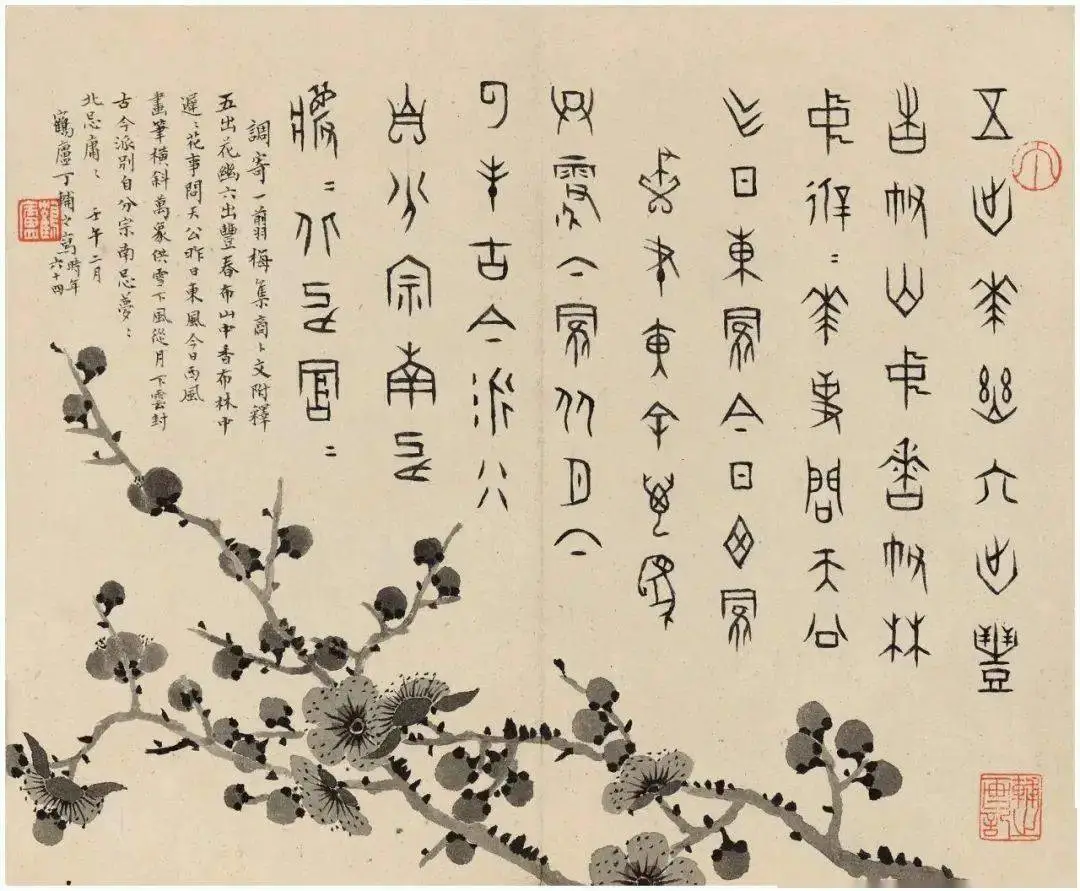 五出花幽六出豐
春布山中香布林
中遲〻花事問天公
乍日東風今日西風
畫筆橫斜萬象
供雪下風從月下
云封古今派八
自分宗南忌
夢〻北忌庸〻
調寄一翦梅集商卜文附釋
五出花幽六出豐春布山中香布林中
遲〻花事問天公昨日東風今日西風
畫筆橫斜萬象供雪下風從月下雲封
古今派別自分宗南忌夢〻
北忌庸〻 壬午二月
鶴廬丁輔之寫時年六十四
鶴廬